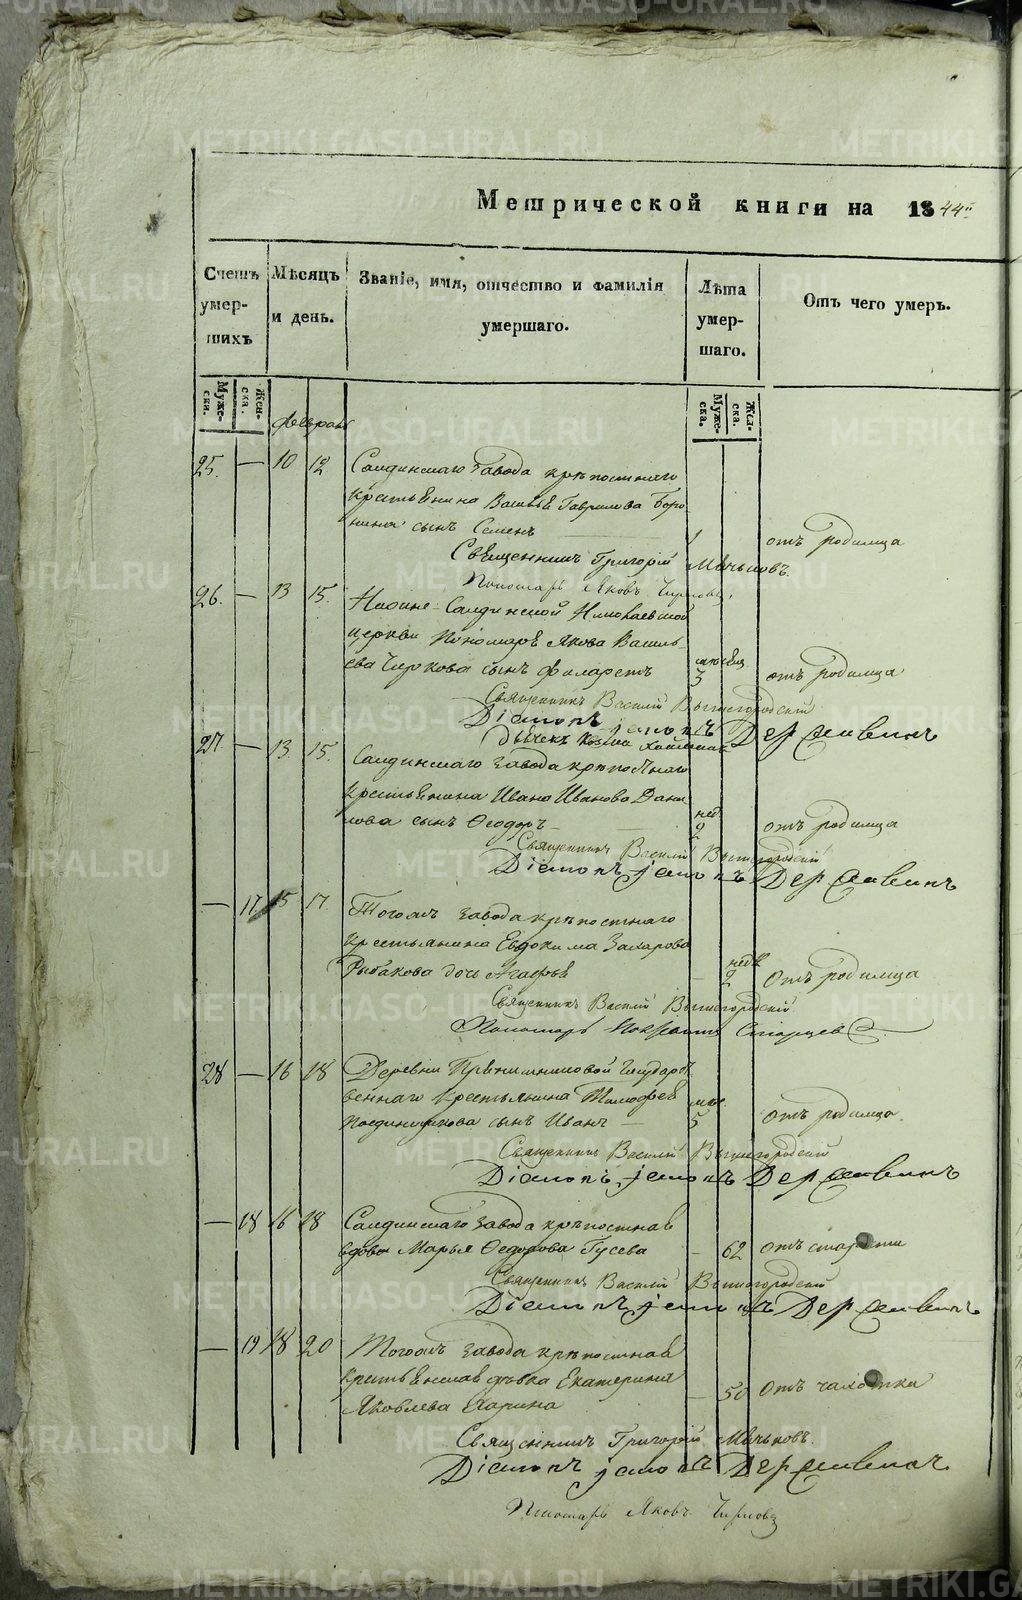 Метрической книги на 1844й
Счетъ умер-шихъ
Мѣсяцъ и день.
Званіе, имя, отчество и фамилія умершаго.
Лѣта умер-шаго.
Отъ чего умеръ.
Муже-ска.
Жен-ска.
Муже-ска.
Жен-ска.
февраль
25. — 10 12 Салдинскаго завода крѣпостнаго
крестьянина Василья Гаврилова Боро
нина сынъ Семенъ 1 отъ родимца
Священникъ Григорій Мѣньшовъ.
Пономарь Яковъ Чирковъ
26. — 13 15. Нижне-Салдинской Николаевской
церкви Пономаря Якова Василь
ева Чиркова сынъ Филаретъ 3 отъ родимца
Священникъ Василій Вышегородскій
Діаконъ Державинъ
27 — 13 15. Салдинскаго завода крѣпостнаго
крестьянина Ивана Иванова Дани
лова сынъ Ѳеодоръ нед 2 отъ родимца
Священникъ Василій Вышегородскій
Діаконъ Державинъ
— 17 15 17. Тогожъ завода крѣпостнаго
крестьянина Евдокима Захарова
Рыбакова дочь Агафья нед 2 Отъ родимца
Священникъ Василій Вышегородскій
Пономарь Старцев
28 — 16 18 Деревни Государст
веннаго крестьянина Тимофея
сынъ Иванъ мѣс. 5 отъ родимца
Священникъ Василій Вышегородскій
Діаконъ Державинъ
— 18 16 18 Салдинскаго завода крѣпостная
вдова Марья Ѳедорова Гусева — 62 отъ старости
Священникъ Василій Вышегородскій
Діаконъ Державинъ
— 19 18 20 Тогожъ завода крѣпостная
крестьянская дѣвка Екатерина
Яковлева — 50 Отъ чахотки
Священникъ Григорій Мѣньшовъ.
Діаконъ Державинъ
Пономарь Яковъ Чирковъ
METRIKI.GASO-URAL.RU